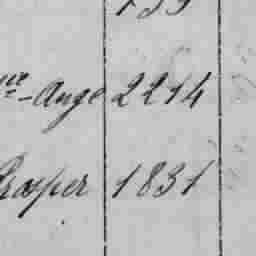 -Ange 2214
Prosper 1831